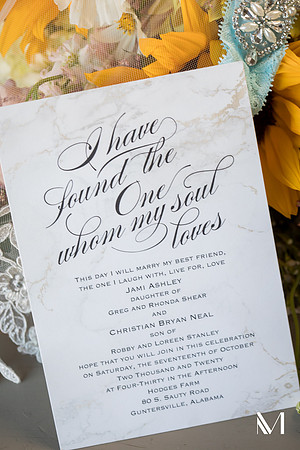 I have
found the
One
whom my soul
loves
This day I will marry my best friend,
the one I laugh with, live for, love
Jami Ashley
daughter of
Greg and Rhonda Shear
and
Christian Bryan Neal
son of
Robby and Loreen Stanley
hope that you will join in this celebration
on Saturday, the seventeenth of October
Two Thousand and Twenty
at Four-Thirty in the Afternoon
Hodges Farm
80 S. Sauty Road
Guntersville, Alabama